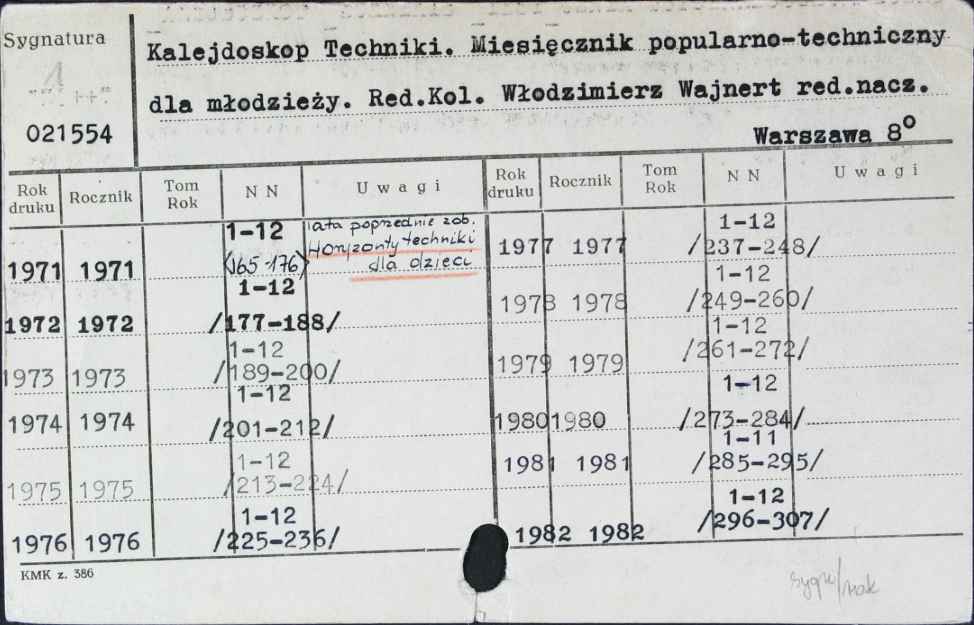 Sygnatura
Kalejdoskop Techniki. Miesięcznik popularno-techniczny
dla młodzieży. Red.Kol. Włodzimierz Wajnert red.nacz.
021554
Warszawa 8°
Rok druku Rocznik Tom Rok N N Uwagi Rok druku Rocznik Tom Rok N N Uwagi
1-12 lata poprzednie zob.
1971 1971 (165-176) Horyzonty techniki
dla dzieci
1-12
1972 1972 /177-188/
1-12
1973 1973 /189-200/
1-12
1974 1974 /201-212/
1-12
1975 1975 /213-224/
1-12
1976 1976 /225-236/
1-12
1977 1977 /237-248/
1-12
1978 1978 /249-260/
1-12
1979 1979 /261-272/
1-12
1980 1980 /273-284/
1-11
1981 1981 /285-295/
1-12
1982 1982 /296-307/
KMK z. 386